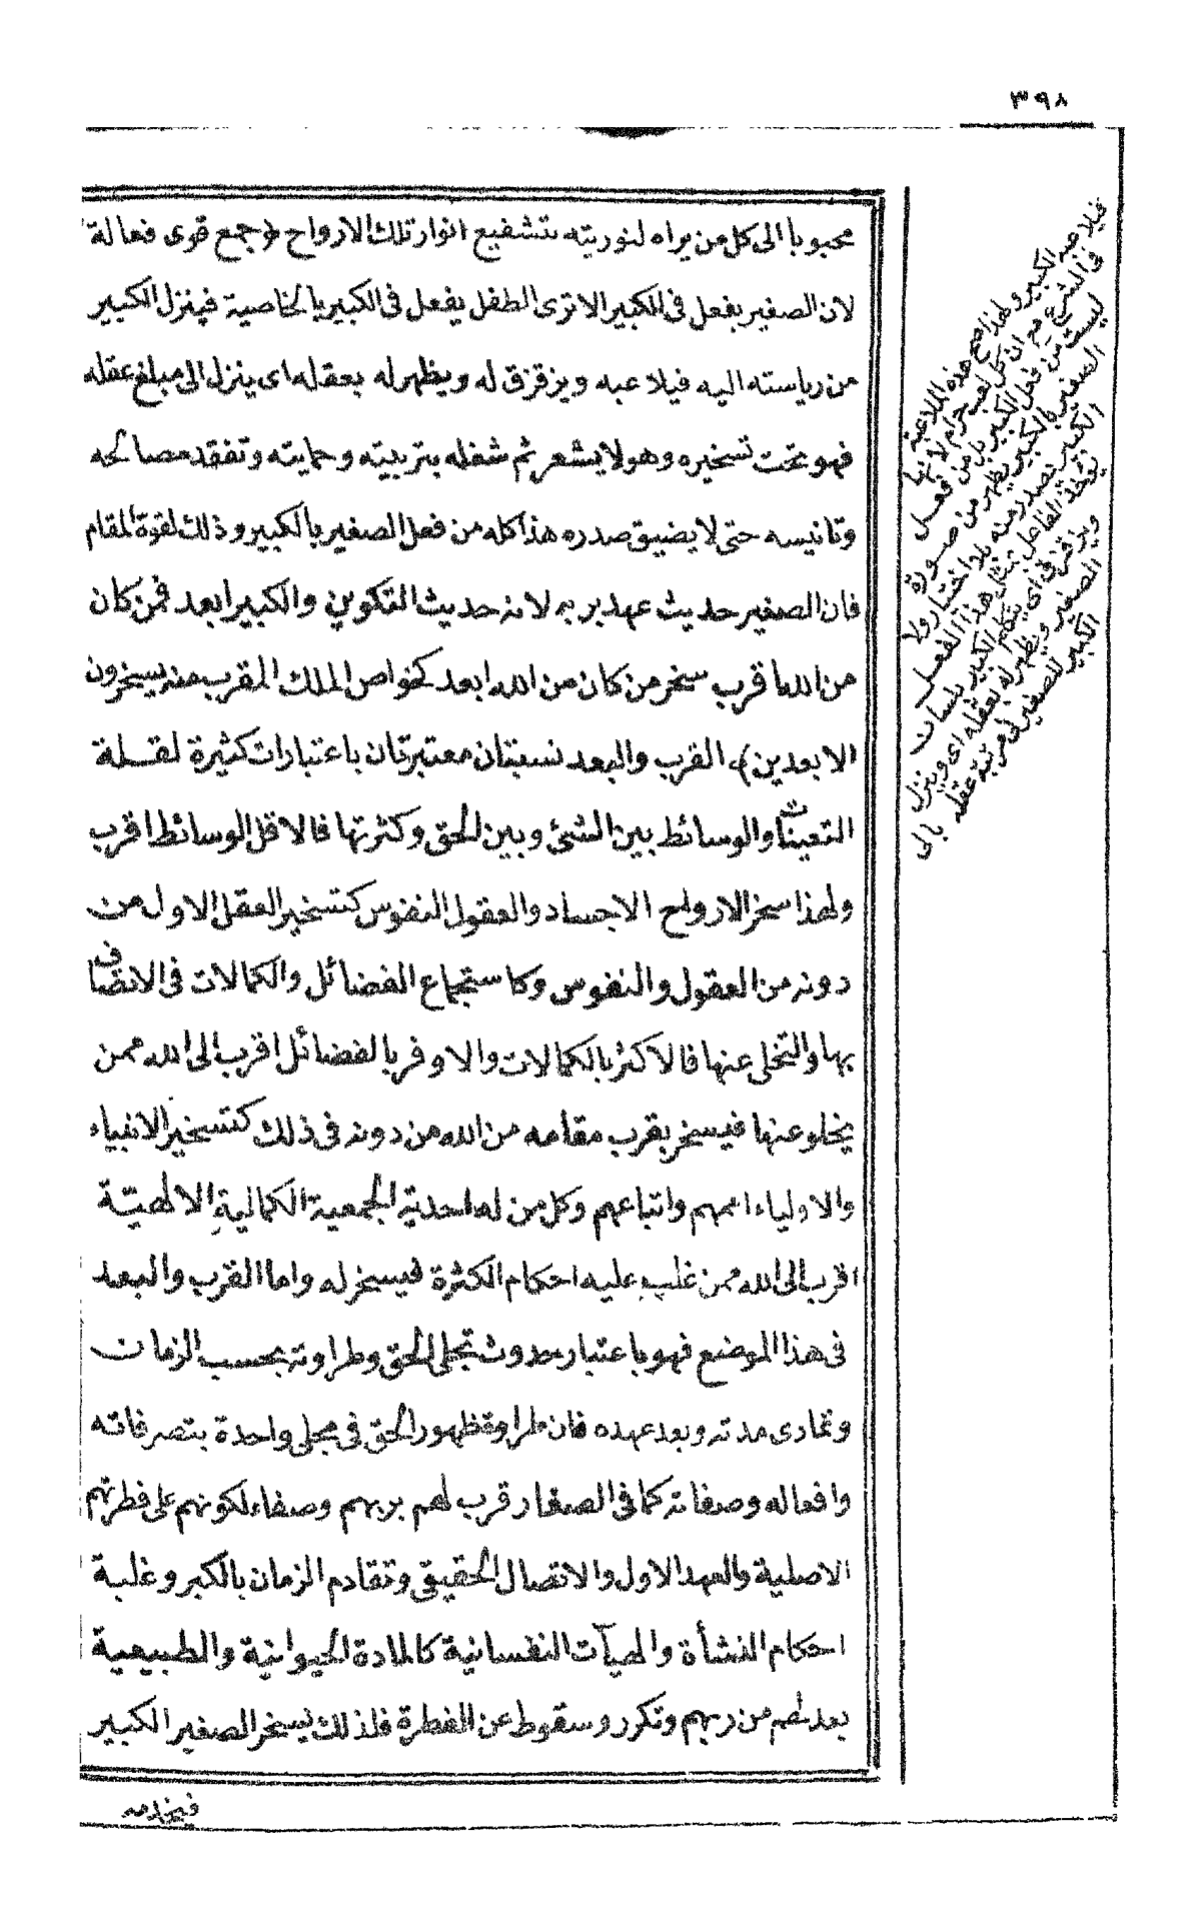 ٣٩٨
محبوبا الى كل من يراه لنوريته بتشفيع انوار تلك الارواح ﴿جمع قوى فعالة
لان الصغير يفعل فى الكبير الا ترى الطفل يفعل فى الكبير بالخاصية فينزل الكبير
من رياسته اليه فيلاعبه ويزقزق له ويظهر له بعقله اى ينزل الى مبلغ عقله
فهو تحت تسخيره وهو لا يشعر ثم شغله بتربيته وحمايته وتفقد مصالحه
وتانيسه حتى لا يضيق صدره هذا كله من فعل الصغير بالكبير وذلك لقوة المقام
فان الصغير حديث عهد بربه لانه حديث التكوين والكبير ابعد فمن كان
من الله اقرب سخر من كان من الله ابعد كخواص الملك المقرب منه يسخرون
الابعدين﴾ القرب والبعد نسبتان معتبرتان باعتبارات كثيرة لقلة
التعينات والوسائط بين الشئ وبين الحق وكثرتها فالاقل الوسائط اقرب
ولهذا سخر الارواح الاجساد والعقول النفوس كتسخير العقل الاول من
دونه من العقول والنفوس وكاستجماع الفضائل والكمالات فى الاتصاف
بها والتخلى عنها فالاكثر بالكمالات والاوفر بالفضائل اقرب الى الله ممن
يخلو عنها فيسخر بقرب مقامه من الله من دونه فى ذلك كتسخير الانبياء
والاولياء اممهم واتباعهم وكل من له احدية الجمعية الكمالية الالهيّة
اقرب الى الله ممن غلب عليه احكام الكثرة فيسخر له واما القرب والبعد
فى هذا الموضع فهو باعتبار حدوث تجلى الحق وطراوته بحسب الزمان
وتمادى مدته وبعد عهده فان طراوة ظهور الحق فى مجلى واحدة بتصرفاته
وافعاله وصفاته كما فى الصغار قرب لهم بربهم وصفاء لكونهم على فطرتهم
الاصلية والعهد الاول والاتصال الحقيقى وتقادم الزمان بالكبر وغلبة
احكام النشأة والهيآت النفسانية كالمادة الحيوانية والطبيعية
بعد لهم من ربهم وتكرر وسقوط عن الفطرة فلذلك يسخر الصغير الكبير
فيخدمه
فيلاعبه الكبير ولهذا صح هذه الملاعبة
فى الشرع مع ان كل لعب حرام لانها
ليست من فعل الكبير بل من فعل
الصغير بالكبير يظهر من صورة
الكبير يصدر منه بلا اختيار ولا
يؤخذ الفاعل بمثل هذا الفعل
ويزقزق اى يتكلم الكبير بلسان
الصغير ويظهر له بعقله اى وينزل
الكبير للصغير فى مرتبة عقله بالى